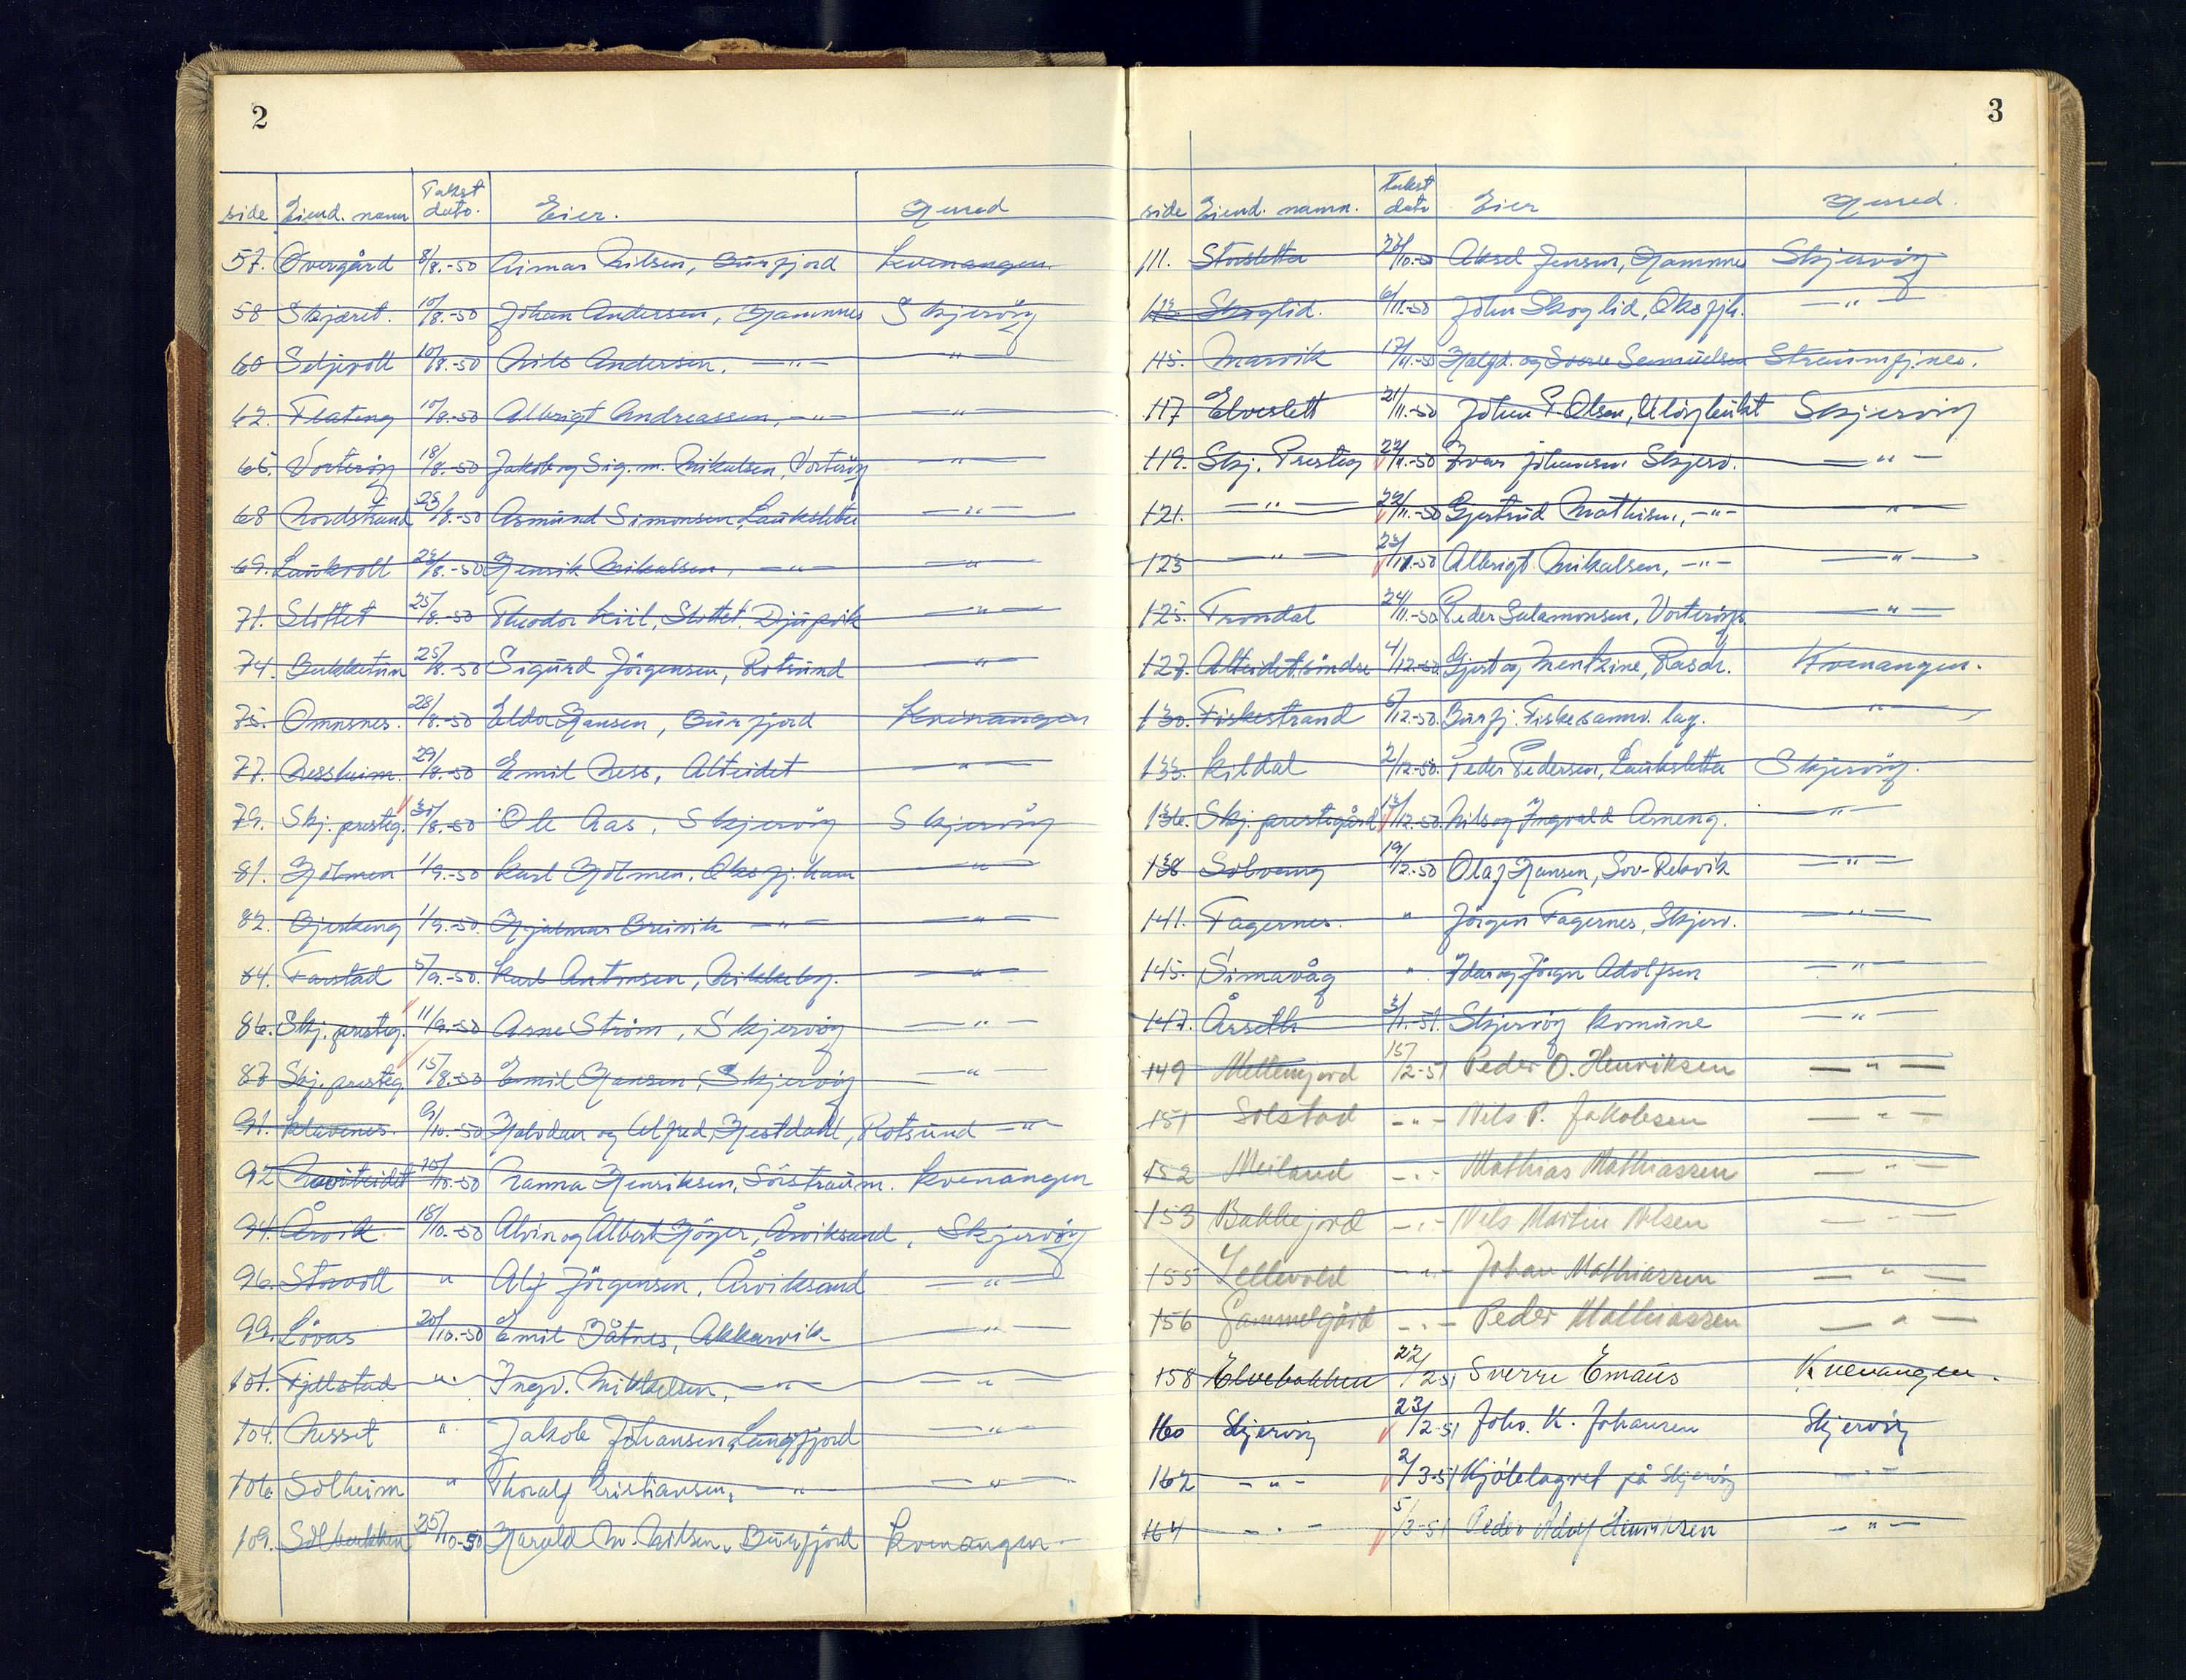 2
side Eiend. navn Takst dato. Eier. Herred
57. Övergård 8/8.-50 Aimar Nilsen, Burfjord Kvenangen
58 Skjæret. 10/8.-50 Johan Andersen, Hamnnes Skjervöy
60 Seljevoll 10/8.-50 Nils Andersen, —"— "
62. Flateng 10/8.-50 Albrigt Andreassen, —"— —"—
65. Vorteröy 18/8.-50 Jakob og Sig. m. Mikalsen, Vorteröy —"—
68 Nordstrand 23/8.-50 Asmund Simonsen, Lauksletta —"—
69. Laukvoll 23/8.-50 Henrik Mikalsen, —"— —"—
71. Slottet 25/8.-50 Theodor Kiil, Slottet. Djupvik —"—
74. Bakketun 25/8.-50 Sigurd Jörgensen, Rotsund —"—
75. Omnsnes. 28/8.-50 Eldor Hansen, Burfjord Kvenangen
77. Nessheim. 29/8.-50 Emil Ness, Alteidet —"—
79. Skj. presteg. 30/8.-50 Ole Aas, Skjervöy Skjervöy
81. Holmen 1/9.-50 Karl Holmen, Oksfj. ham —"—
82. Bjerkeng 1/9.-50. Hjalmar Breivik —"— —"—
84. Farstad 5/9.-50. Karl Antonsen, Nikkeby. —"—
86. Skj. presteg. 11/9.-50 Arne Ström, Skjervöy —"—
87 Skj. presteg. 15/8.-50 Emil Hansen, Skjervöy —"—
91. Klavenes. 9/10.-50 Halvdan og Alfred Hestdahl, Rotsund —"—
92 Naviteidet 10/10.-50 Hanna Henriksen, Sörstraum. Kvenangen
94. Årvik 18/10.-50 Alvin og Albert Höyer, Årviksand, Skjervöy
96. Storvoll " Alf Jörgensen, Årviksand —"—
99. Lövås 20/10.-50 Emil Båtnes, Akkarvik —"—
101. Fjellstad " Ingv. Mikkelsen, —"— —"—
104. Nesset " Jakob Johansen, Langfjord —"—
106. Solheim " Thoralf Kristiansen, —"— —"—
109. Solbakken 25/10-50 Harald M. Nilsen, Burfjord Kvenangen
3
side Eiend. namn. Takst dato Eier Herred.
111. Storsletta 23/10.-50 Aksel Jensen, Hamnnes Skjervöy
113. Skoglid. 6/11.-50 John Skoglid, Oksfjh. —"—
115. Marvik 17/11.-50 Halfd. og Sverre Samuelsen Straumfjnes.
117 Elveslett 21/11.-50 Johan P. Olsen, Ulöybukt Skjervöy
119. Skj. Presteg 22/11.-50 Ivar Johansen Skjerv. —"—
121. —"— 22/11.-50 Gjertrud Mathisen, —"— "
123 —"— 23/11.-50 Albrigt Mikalsen, —"— —"—
125. Trondal 24/11.-50 Peder Salamonsen, Vorteröy. —"—
127. Alteidet söndre 4/12.-50 Gjert og Mentzine, Rasch. Kvenangen.
130. Fiskestrand 5/12.-50. Burfj. Fiskesamv. lag. "
133. Kildal 2/12.-50. Peder Pedersen, Lauksletta Skjervöy.
136. Skj. prestegård 13/12.-50. Nils og Ingvald Arneng. —"—
138 Solvang 19/12.-50 Olaf Hansen, Lov-Rekvik —"—
141. Fagernes. " Jörgen Fagernes, Skjerv. —"—
145. Simavåg " Idar og Jörgn Adolfsen —"—
147. Årseth 3/1.-51. Skjervöy komune —"—
149 Mellemjord 15/2-51 Peder O. Henriksen —"—
151 Solstad —"— Nils P. Jakobsen —"—
152 Meiland —"— Mathias Mathiassen —"—
153 Bakkejord —"— Nils Martin Nilsen —"—
155 Sellevold —"— Johan Mathiassen —"—
156 Gammelgård —"— Peder Mathiassen —"—
158 Elvebakken 22/2 51 Sverre Emaus Kvenangen.
160 Skjervöy 23/2-51 Johs. K. Johansen Skjervöy
162 —"— 2/3-51 Kjölelagret på Skjervöy —"—
164 —"— 5/3-51 Peder Adolf Henriksen —"—